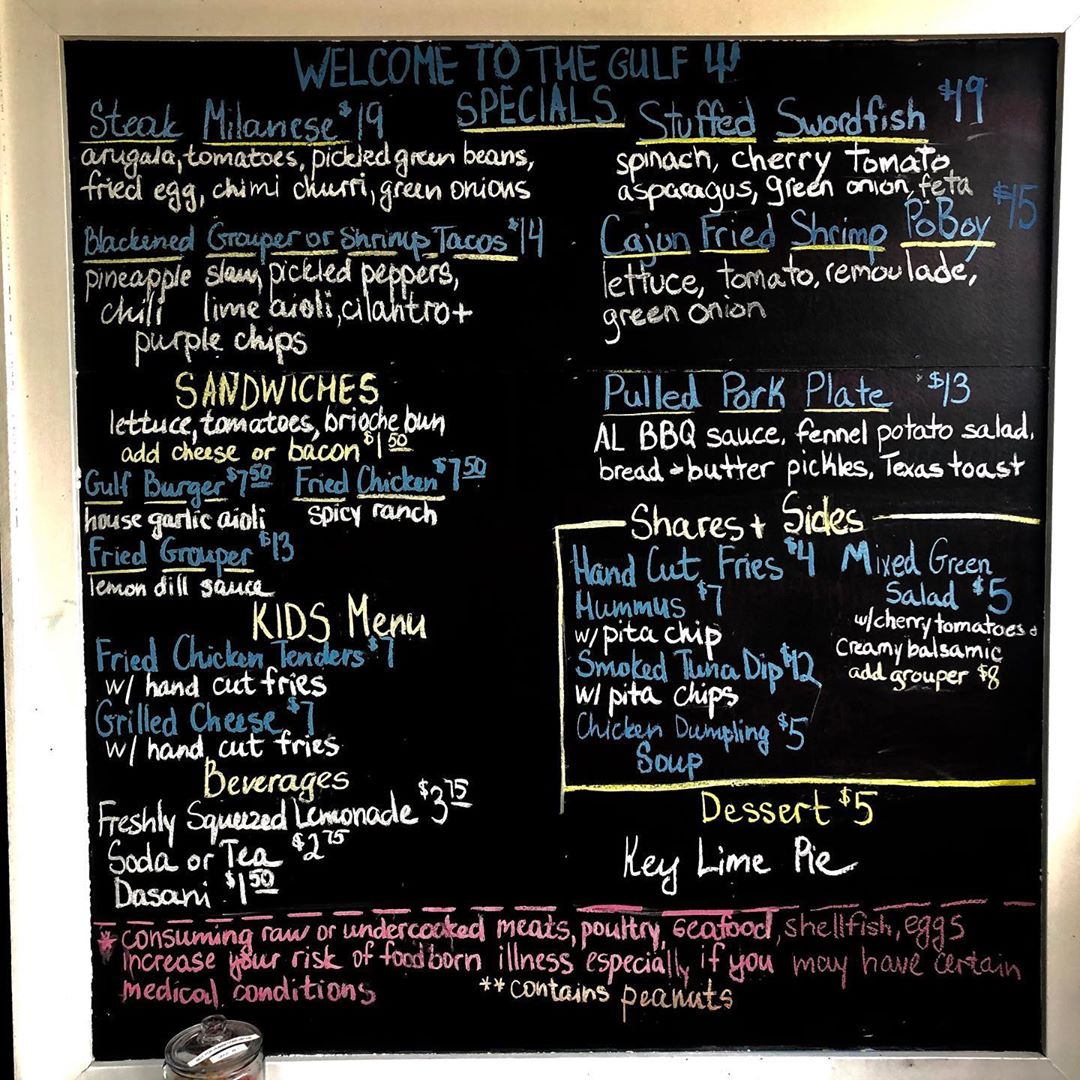 WELCOME TO THE GULF
SPECIALS
Steak Milanese $19
arugala, tomatoes, pickled green beans,
fried egg, chimi churri, green onions
Blackened Grouper or Shrimp Tacos $14
pineapple slaw, pickled peppers,
chili lime aioli, cilantro +
purple chips
Stuffed Swordfish $19
spinach, cherry tomato,
asparagus, green onion, feta
Cajun Fried Shrimp PoBoy $15
lettuce, tomato, remoulade,
green onion
SANDWICHES
lettuce, tomatoes, brioche bun
add cheese or bacon $1.50
Gulf Burger $7.50 Fried Chicken $7.50
house garlic aioli spicy ranch
Fried Grouper $13
lemon dill sauce
KIDS Menu
Fried Chicken Tenders $7
w/ hand cut fries
Grilled Cheese $7
w/ hand cut fries
Beverages
Freshly Squeezed Lemonade $3.75
Soda or Tea $2.75
Dasani $1.50
Pulled Pork Plate $13
AL BBQ sauce, fennel potato salad,
bread + butter pickles, Texas toast
Shares + Sides
Hand Cut Fries $4
Hummus $7
w/ pita chip
Smoked Tuna Dip $12
w/ pita chips
Chicken Dumpling $5
Soup
Mixed Green
Salad $5
w/ cherry tomatoes +
creamy balsamic
add grouper $8
Dessert $5
Key Lime Pie
* consuming raw or undercooked meats, poultry, seafood, shellfish, eggs
increase your risk of foodborn illness especially if you may have certain
medical conditions **contains peanuts